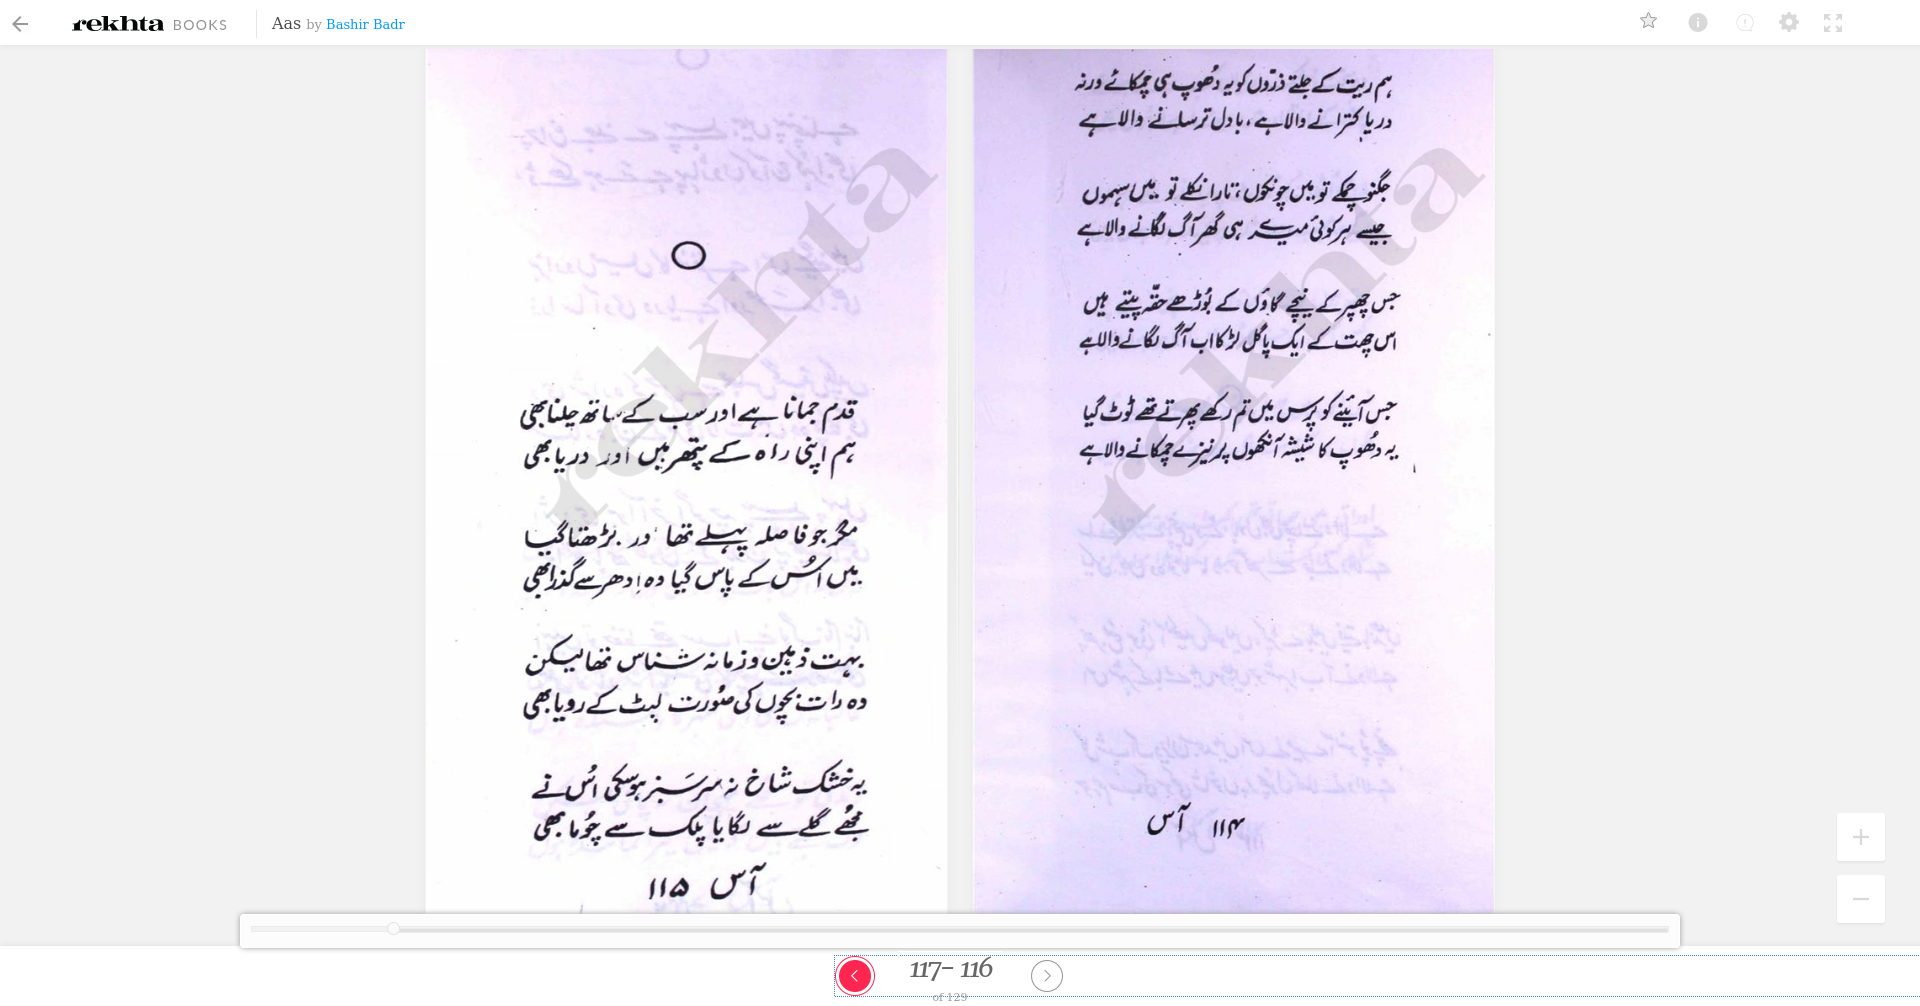 rekhta BOOKS Aas by Bashir Badr
ہم ریت کے جلتے ذرّوں کو یہ دُھوپ ہی چمکائے ورنہ
دریا کترانے والا ہے، بادل ترسانے والا ہے
جگنو چمکے تو میں چونکوں، تارا نکلے تو میں سہموں
جیسے ہر کوئی میرے ہی گھر آگ لگانے والا ہے
جس چھپر کے نیچے گاؤں کے بُوڑھے حقّہ پیتے ہیں
اس چھت کے ایک پاگل لڑکا اب آگ لگانے والا ہے
جس آئینے کو پرس میں تم رکھے پھرتے تھے ٹوٹ گیا
یہ دُھوپ کا شیشہ آنکھوں پر نیزے چمکانے والا ہے
۱۱۴ آس
قدم جمانا ہے اور سب کے ساتھ چلنا بھی
ہم اپنی راہ کے پتھر ہیں اور دریا بھی
مگر جو فاصلہ پہلے تھا اور بڑھتا گیا
میں اُس کے پاس گیا وہ اِدھر سے گذرا بھی
بہت ذہین و زمانہ شناس تھا لیکن
وہ رات بچّوں کی صُورت لپٹ کے رویا بھی
یہ خشک شاخ نہ سرسبز ہو سکی اُس نے
مُجھے گلے سے لگایا پلک سے چُوما بھی
آس ۱۱۵
rekhta
rekhta
117– 116
of 129